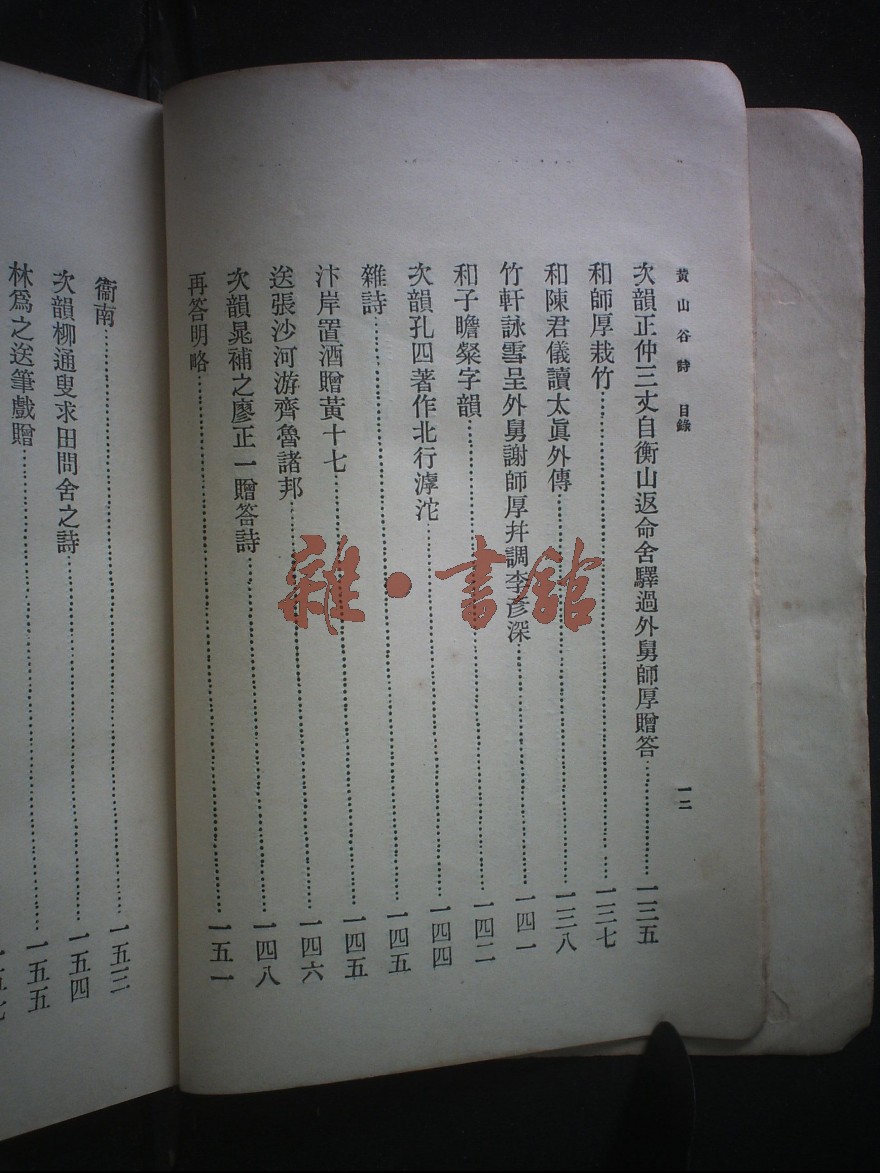 黃山谷詩 目錄 一二
次韻正仲三丈自衡山返命舍驛過外舅師厚贈答……一三五
和師厚栽竹……一三七
和陳君儀讀太眞外傳……一三八
竹軒詠雪呈外舅謝師厚幷調李彥深……一四一
和子瞻粲字韻……一四二
次韻孔四著作北行滹沱……一四四
雜詩……一四五
汴岸置酒贈黃十七……一四五
送張沙河游齊魯諸邦……一四六
次韻晁補之廖正一贈答詩……一四八
再答明略……一五一
衞南……一五三
次韻柳通叟求田問舍之詩……一五四
林爲之送筆戲贈……一五五
一五七
雜·書館